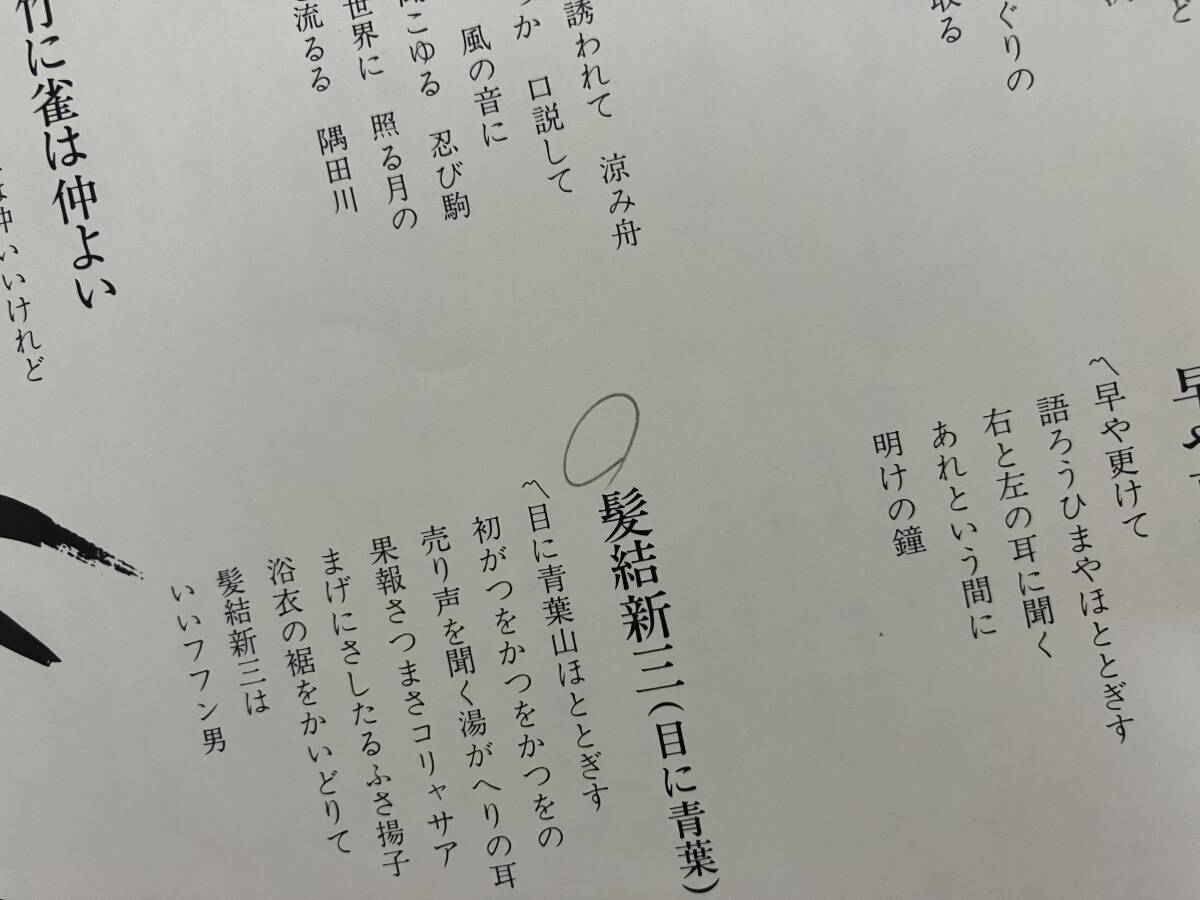 ど
ぐりの
取る
〽早や更けて
語ろうひまやほととぎす
右と左の耳に聞く
あれという間に
明けの鐘
誘われて 涼み舟
か 口説して
風の音に
こゆる 忍び駒
世界に 照る月の
流るる 隅田川
髪結新三(目に青葉)
〽目に青葉山ほととぎす
初がつをかつをかつをの
売り声を聞く湯がへりの耳
果報さつまさコリャサア
まげにさしたるふさ揚子
浴衣の裾をかいどりて
髪結新三は
いいフフン男
竹に雀は仲よい
は仲いいけれど